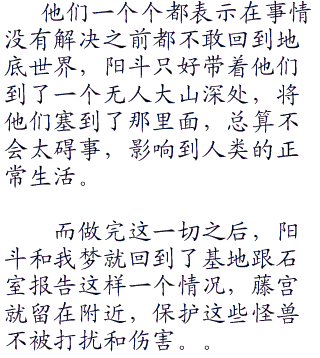 他们一个个都表示在事情
没有解决之前都不敢回到地
底世界，阳斗只好带着他们
到了一个无人大山深处，将
他们塞到了那里面，总算不
会太碍事，影响到人类的正
常生活。
而做完这一切之后，阳
斗和我梦就回到了基地跟石
室报告这样一个情况，藤宫
就留在附近，保护这些怪兽
不被打扰和伤害。。